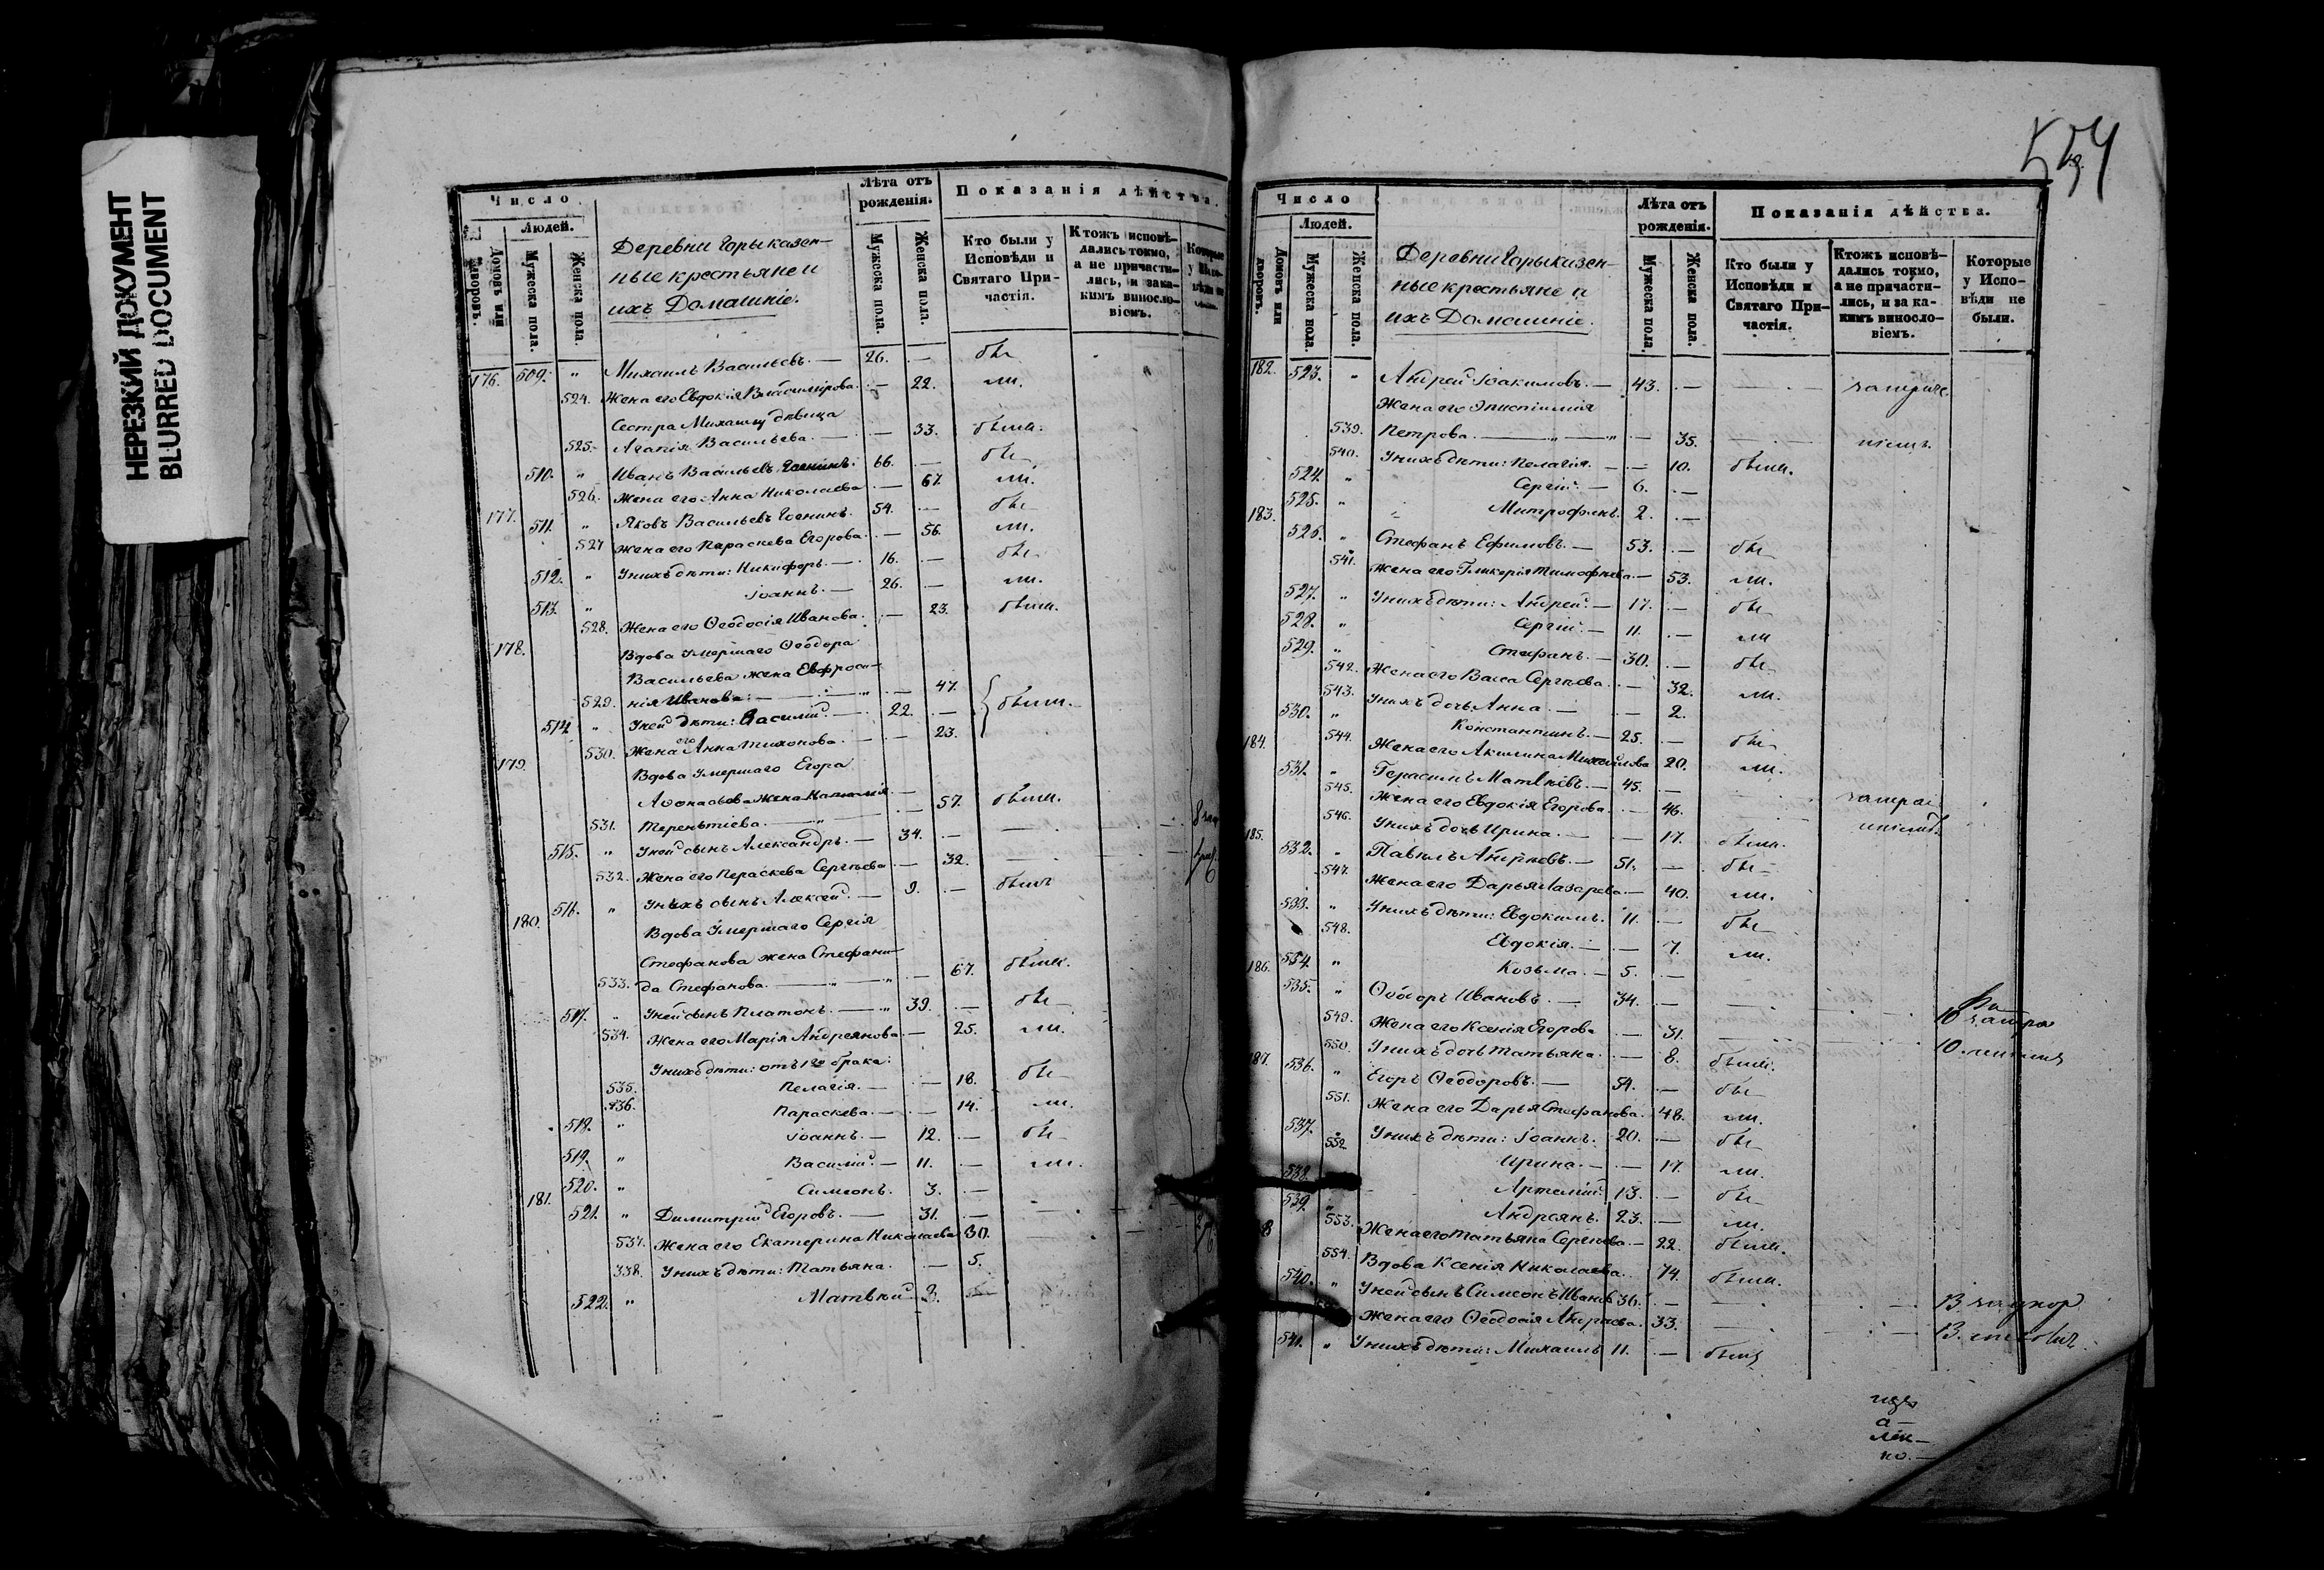 НЕРЕЗКИЙ ДОКУМЕНТ
BLURRED DOCUMENT
Число.
Людей.
Домовъ или дворовъ.
Мужеска пола.
Женска пола.
Деревни Горы казен-
ные крестьяне и
ихъ Домашніе.
Лѣта отъ рожденія.
Мужеска пола.
Женска пола.
Показанія дѣйства.
Кто были у Исповѣди и Святаго Причастія.
Ктожъ исповѣдались токмо, а не причастились, и за какимъ винословіемъ.
Которые
176. 509. " Михаилъ Васильевъ. — 26. — бы
524. Жена его Евдокія Владимірова. — 22. ли.
Сестра Михаилу дѣвица
525. Агапія Васильева. — — 33. были.
510. " Иванъ Васильевъ 66. — бы
526. Жена его Анна Николаева — 67. ли.
177. 511. " Яковъ Васильевъ 54. — бы
527 Жена его Параскева Егорова. — 56. ли.
512. " У нихъ дѣти: Никифоръ. — 16. — бы
513. " Іоаннъ. — 26. — ли.
528. Жена его Ѳеодосія Иванова. — 23. были.
178. Вдова умершаго Ѳеодора
Васильева жена Евфроси-
529. нія Иванова: — " — 47.
514. " У ней дѣти: Василій. — 22. — были.
530. Жена его Анна Тихонова. — — 23.
179. Вдова умершаго Егора
Аѳонасьева жена Наталія —
531. Терентіева. — " — 57. были.
515. " У ней сынъ Александръ. — 34. —
532. Жена его Параскева Сергѣева — 32. —
516. " У нихъ сынъ Алексѣй. — 9. — былъ
180. Вдова умершаго Сергія
Стефанова жена Стефани-
533. да Стефанова. — " — " — 67. были.
517. " У ней сынъ Платонъ. — " 39. — бы
534. Жена его Марія Андреянова — 25. ли.
У нихъ дѣти: отъ 1го брака:
535. Пелагія. — — 18. бы
536. Параскева. — — 14. ли.
518. " Іоаннъ. — 12. — бы
519. " Василій. — 11. — ли.
520. " Симеонъ. 3. —
181. 521. " Димитрій Егоровъ. — 31. —
537. Жена его Екатерина Николаева 30. —
338. У нихъ дѣти: Татьяна. — 5.
522. " Матвѣй 3. —
Число
Людей.
Домовъ или дворовъ.
Мужеска пола.
Женска пола.
Деревни Горы казен-
ные крестьяне и
ихъ Домашніе.
Лѣта отъ рожденія.
Мужеска пола.
Женска пола.
Показанія дѣйства.
Кто были у Исповѣди и Святаго Причастія.
Ктожъ исповѣдались токмо, а не причастились, и за какимъ винословіемъ.
Которые у Исповѣди не были.
182. 523. " Андрей Іоакимовъ. — 43. — —
Жена его
539. Петрова. — " — " — 35. —
540. У нихъ дѣти: Пелагія. — — 10. были.
524. " Сергій. — 6. —
525. " Митрофанъ. 2. —
183. 526. " Стефанъ Ефимовъ. — 53. — бы
541. Жена его Гликерія Тимофѣева — 53. ли.
527. " У нихъ дѣти: Андрей. — 17. — бы
528. " Сергій. — 11. — ли
529. " Стефанъ. — 30. — бы
542. Жена его Васса Сергѣева. — 32. ли.
543. У нихъ дочь Анна. — — 2.
530. " Константинъ. — 25. — бы
544. Жена его Акилина Михайлова 20. ли.
184. 531. " Герасимъ Матвѣевъ. — 45. —
545. Жена его Евдокія Егорова. — 46.
546. У нихъ дочь Ирина. — — 17. были.
185. 532. " Павелъ 51. — бы
547. Жена его Дарья Лазарева — 40. ли.
533. " У нихъ дѣти: Евдокимъ. 11. — бы
548. Евдокія. — — 7. ли.
534. " Козьма. — 5. —
186. 535. " Ѳеодоръ Ивановъ. — 34. —
549. Жена его Ксенія Егорова — 31. —
550. У нихъ дочь Татьяна. — 8. были.
187. 536. " Егоръ Ѳеодоровъ. — 54. — бы
551. Жена его Дарья Стефанова. 48. ли.
537. " У нихъ дѣти: Іоаннъ. 20. — бы
552. Ирина. — — 17. ли.
538. Артемій. 13. — бы
539. Андреянъ. 23. — ли.
553. Жена его Татьяна Сергѣева. — 22. были.
554. Вдова Ксенія Николаева. 74. были.
540. " У ней сынъ Симеонъ Ивановъ 36. —
Жена его Ѳеодосія 33. —
541. " У нихъ дѣти: Михаилъ 11. — былъ